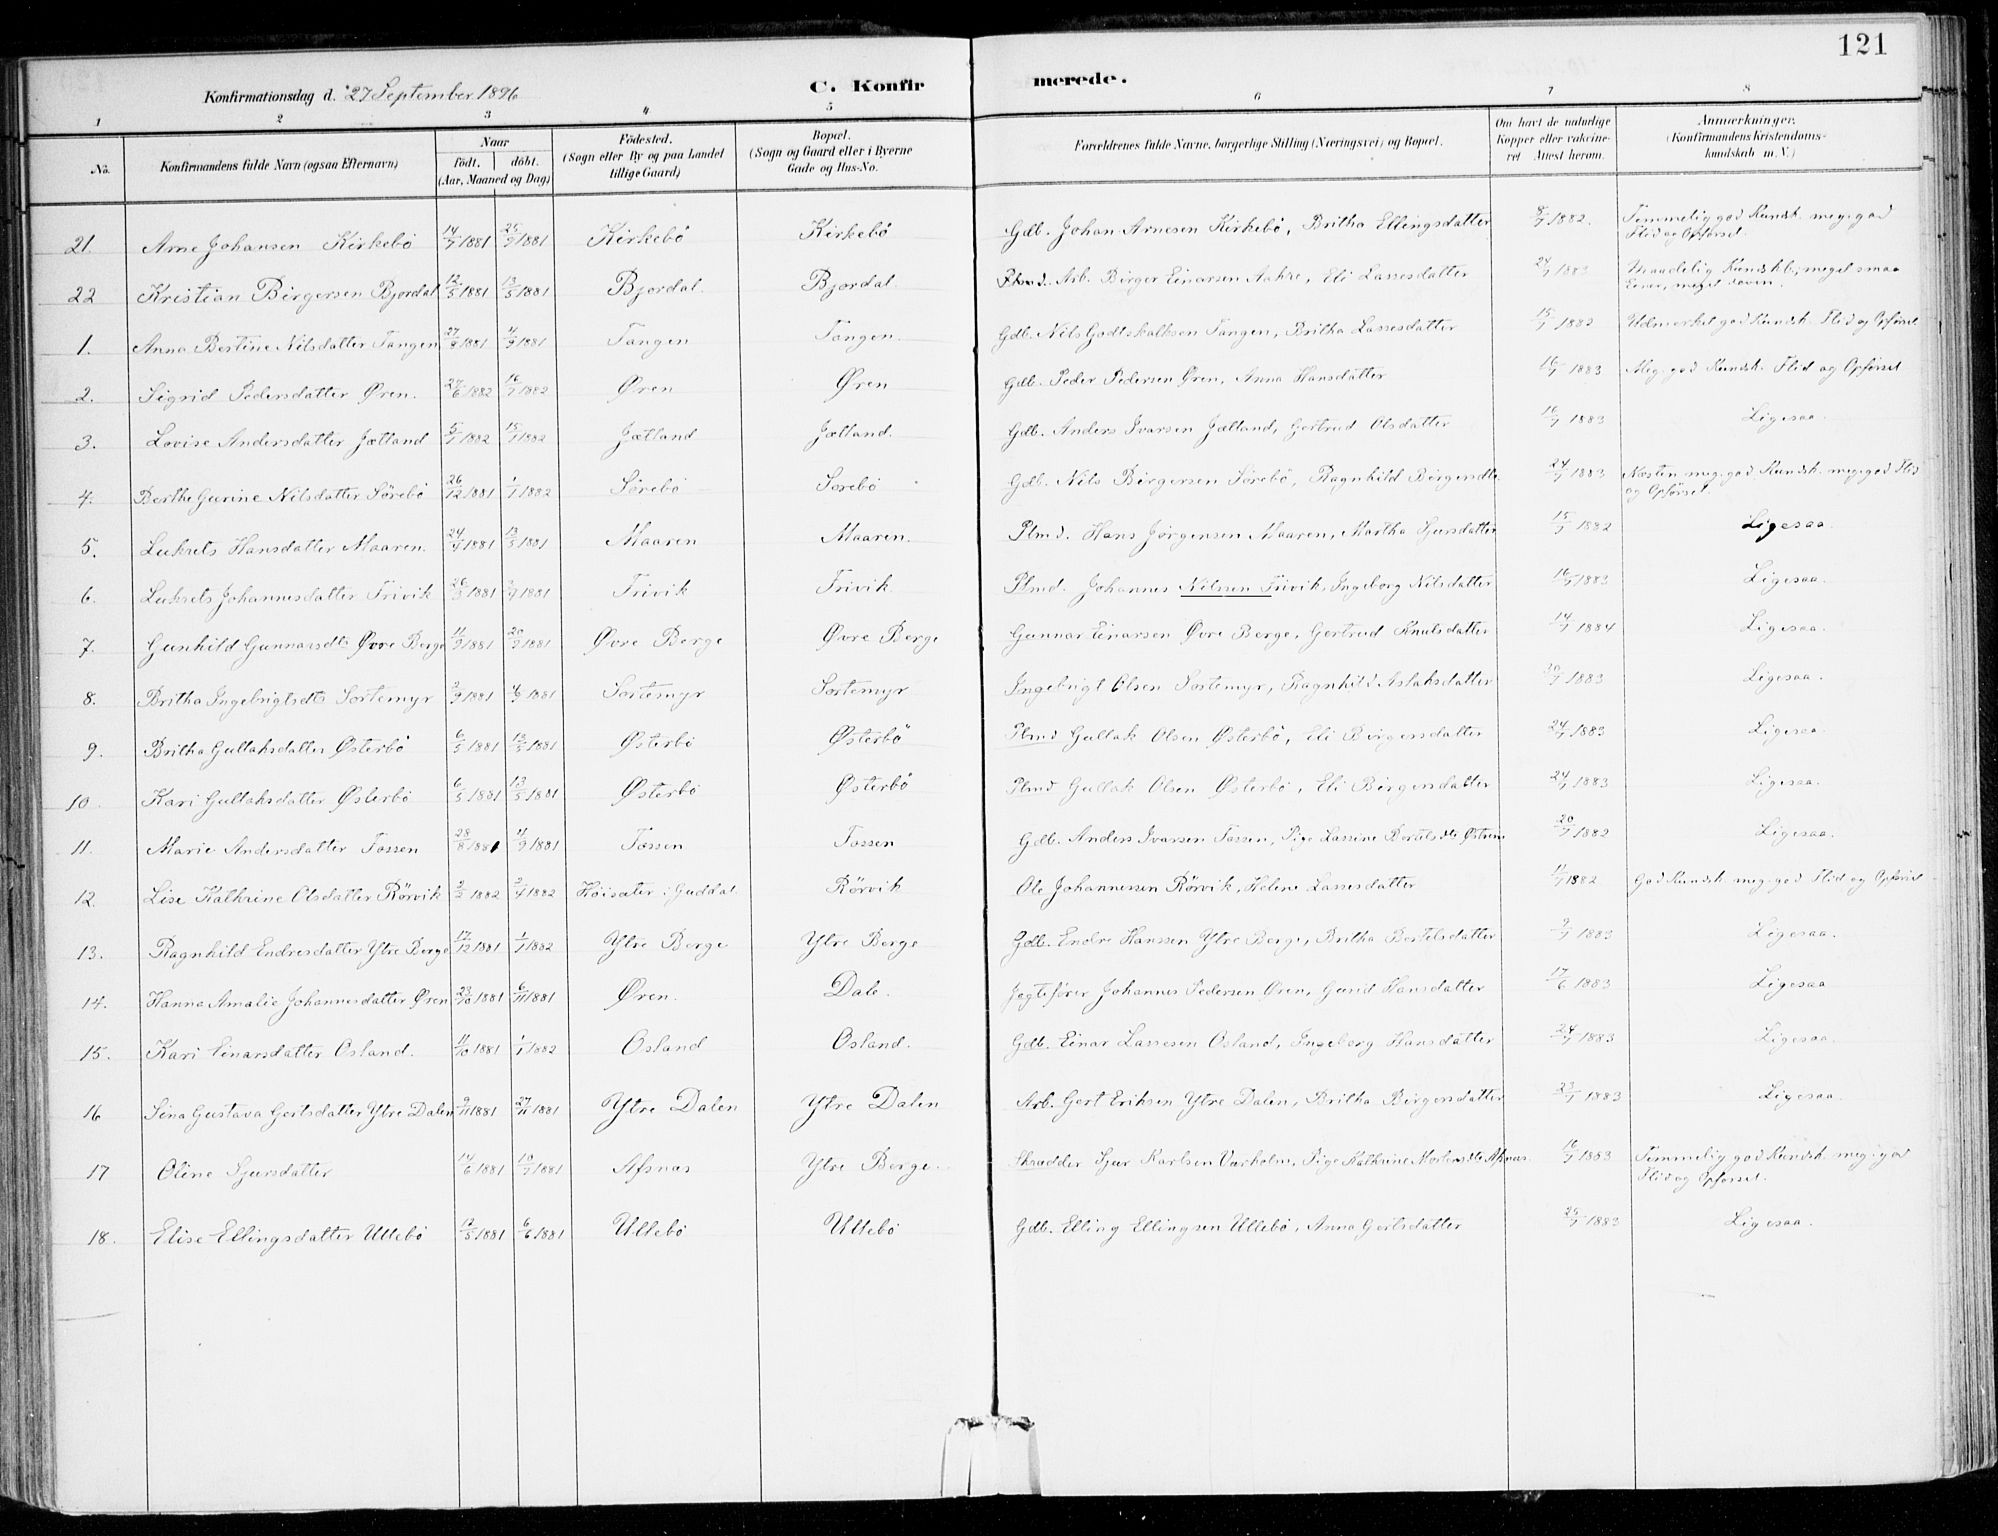 121
Konfirmationsdag d. 27 September 1896
C. Konfirmerede.
1 2 3 4 5 6 7 8
No. Konfirmandens fulde Navn (ogsaa Efternavn) Naar født. døbt. (Aar, Maaned og Dag) Fødested. (Sogn eller By og paa Landet tillige Gaard) Bopæl. (Sogn og Gaard eller i Byerne Gade og Hus-No. Forældrenes fulde Navne, borgerlige Stilling (Næringsvei) og Bopæl. Om havt de naturlige Kopper eller vakcineret Attest herom. Anmærkninger. (Konfirmandens Kristendomskundskab m. V.)
21. Arne Johansen Kirkebö 14/7 1881 25/9 1881 Kirkebö Kirkebö Gdb. Johan Arnesen Kirkebö, Britha Ellingsdatter 8/7 1882. Temmelig god Kundsk. meg. god Flid og Opførsel.
22 Kristian Birgersen Bjordal 12/5 1881 13/5 1881 Bjordal. Bjordal. Plmd. Arb. Birger Einarsen Aahre, Eli Lassesdatter 24/7 1883 Maadelig Kundskb, meget smaa Evner, meget doven.
1. Anna Bertine Nilsdatter Tangen 27/8 1881 4/9 1881 Tangen Tangen. Gdb. Nils Godtskalksen Tangen, Britha Lassesdatter 15/7 1882 Udmerket god Kundsk. Flid og Opførsel
2. Sigrid Pedersdatter Øren. 24/6 1882 16/7 1882 Øren Øren Gdb. Peder Pedersen Øren, Anna Hansdatter 16/7 1883 Meg. god Kundsk. Flid og Opførsel
3. Lovise Andersdatter Jætland 5/1 1882 15/1 1882 Jætland Jætland. Gdb. Anders Ivarsen Jætland, Gertrud Olsdatter 16/7 1883 Ligesaa.
4. Berthe Gurine Nilsdatter Sörebö 26/12 1881 1/1 1882 Sörebö Sörebö Gdb. Nils Börgersen Sörebö, Ragnhild Börgersdtr. 24/7 1883 Næsten meg. god Kundsk. meg. god Flid og Opførsel.
5. Lukrets Hansdatter Maaren. 24/4 1881 13/5 1881 Maaren Maaren. Plmd. Hans Jörgensen Maaren, Martha Sjursdatter 15/7 1882 Ligesaa.
6. Lukrets Johannesdatter Trivik 26/8 1881 1881 Trivik Trivik. Plmd. Johannes Nilssen Trivik, Ingeborg Nilsdatter 16/7 1883 Ligesaa.
7. Gunhild Gunnarsdtr Øvre Berge 11/9 1881 20/9 1881 Øvre Berge Øvre Berge Gunnar Einarsen Øvre Berge, Gertrud Knutsdatter 14/7 1884 Ligesaa.
8. Britha Ingebrigtsdtr Sortemyr 2/9 1881 4/9 1881 Sortemyr Sortemyr Ingebrigt Olsen Sortemyr, Ragnhild Aslaksdatter 20/7 1883 Ligesaa.
9. Britha Gullaksdatter Østerbö 6/5 1881 13/5 1881 Østerbö Østerbö Plmd Gullak Olsen Østerbö, Eli Birgersdatter 24/7 1883 Ligesaa.
10. Kari Gullaksdatter Østerbö 6/5 1881 13/5 1881 Østerbö Østerbö Plmd Gullak Olsen Østerbö, Eli Birgersdatter 24/7 1883 Ligesaa.
11. Marie Andersdatter Tossen 28/8 1881 4/9 1881 Tossen Tossen Gdb. Anders Ivarsen Tossen, Pige Lassine Bertelsdtr 20/7 1882 Ligesaa.
12. Lise Kathrine Olsdatter Rörvik 2/3 1882 2/4 1882 Höisæter i Guddal. Rörvik Ole Johannessen Rörvik, Helene Lassesdatter 11/7 1882 God Kundsk. meg. god Flid og Opførsel
13. Ragnhild Endresdatter Ytre Berge 17/12 1881 1/1 1882 Ytre Berge Ytre Berge Gdb. Endre Hanssen Ytre Berge, Britha Bertelsdatter 9/7 1883 Ligesaa.
14. Hanna Amalie Johannesdatter Øren 23/10 1881 6/11 1881 Øren. Dale. Jagtefører Johannes Pedersen Øren, Gurid Hansdatter 17/6 1883 Ligesaa
15. Kari Einarsdatter Osland. 11/10 1881 1/1 1882 Osland Osland. Gdb. Einar Lassesen Osland, Ingeborg Hansdatter 24/7 1883 Ligesaa.
16 Sina Gustava Gertsdatter Ytre Dalen 9/11 1881 27/11 1881 Ytre Dalen Ytre Dalen Arb. Gert Eriksen Ytre Dalen, Britha Börgersdatter 23/7 1883 Ligesaa.
17 Oline Sjursdatter 14/6 1881 10/7 1881 Afsnæs Ytre Berge. Skrædder Sjur Karlsen Varholm, Pige Kathrine Mortensdtr Afsnæs. 16/7 1883 Temmelig god Kundsk. meg. god Flid og Opførsel.
18. Elise Ellingsdatter Ullebö 12/5 1881 6/6 1881 Ullebö Ullebö Gdb. Elling Ellingsen Ullebö, Anna Gertsdatter 25/7 1883 Ligesaa.